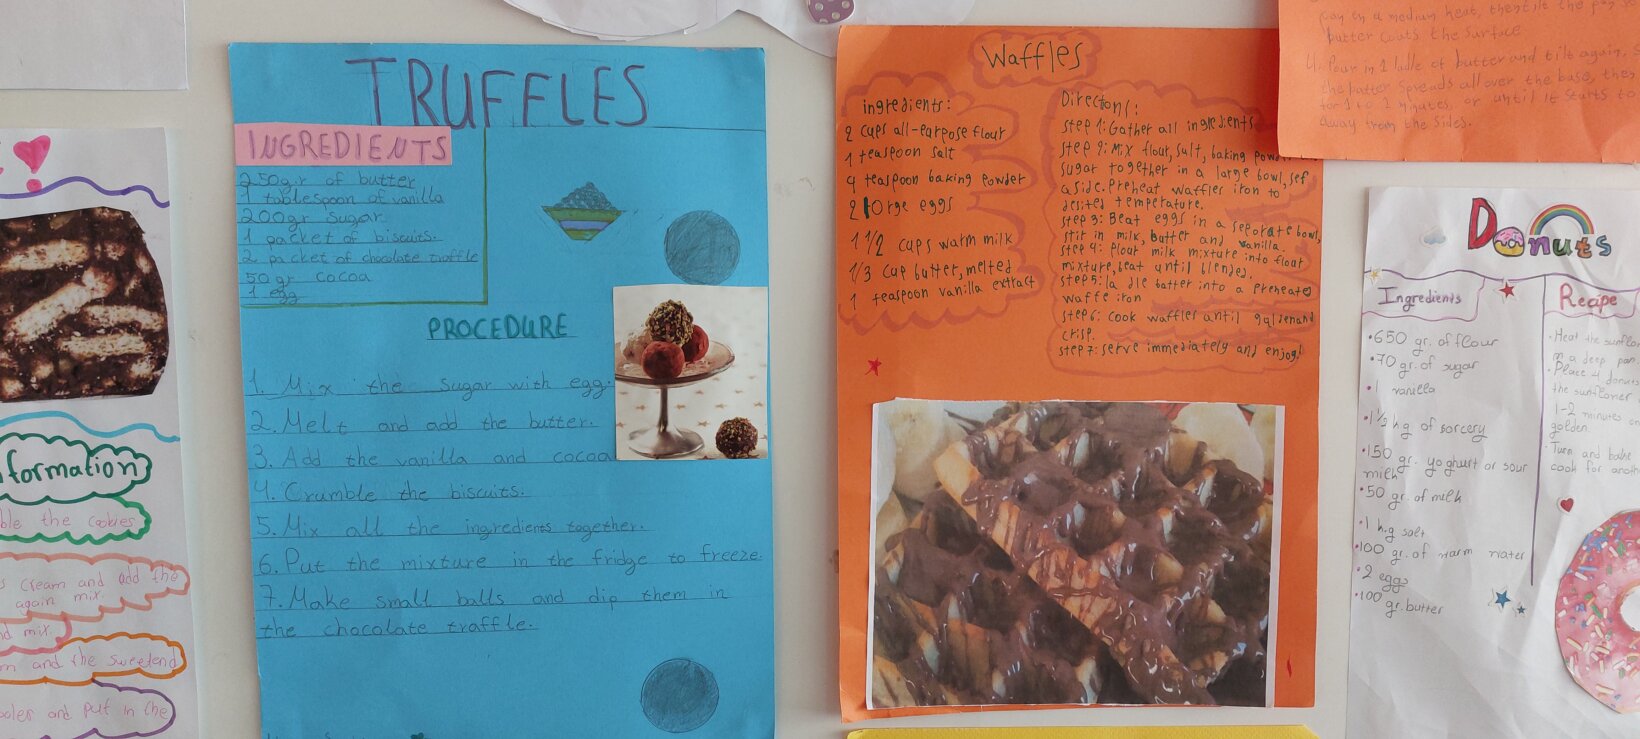 formation
ble the cookies
s cream and add the
again mix.
nd mix.
m and the sweetend
ooler and put in the
TRUFFLES
INGREDIENTS
250gr of butter
1 tablespoon of vanilla
200gr sugar
1 packet of biscuits.
2 packet of chocolate traffle
50 gr cocoa
1 egg
PROCEDURE
1. Mix the sugar with egg.
2. Melt and add the butter.
3. Add the vanilla and cocoa
4. Crumble the biscuits.
5. Mix all the ingredients together.
6. Put the mixture in the fridge to freeze.
7. Make small balls and dip them in
the chocolate traffle.
Waffles
ingredients:
2 cups all-earpose flour
1 teaspoon salt
4 teaspoon baking powder
2 large eggs
1 1/2 cups warm milk
1/3 cup butter, melted
1 teaspoon vanilla extract
Directons:
step 1: Gather all ingredients
step 2: Mix flour, salt, baking powde
sugar together in a large bowl, set
aside. Preheat waffles iron to
desited temperature.
step 3: Beat eggs in a seporate bowl,
stir in milk, butter and vanilla.
step 4: Plour milk mixture into flour
mixture, beat until blended.
step 5: la dle batter into a preheated
waffe iron
step 6: cook waffles until golden and
crisp.
step 7: serve immediately and enjoy!
pan on a medium heat, then tilt the pan so
butter coats the surface
4. Pour in 1 ladle of butter and tilt again, s
the batter spreads all over the base, then
for 1 to 2 minutes, or until it starts to
away from the sides.
Donuts
Ingredients
•650 gr. of flour
•70 gr. of sugar
•1 vanilla
•1 1/2 hg of sorcery
•150 gr. yoghurt or sour
milk
•50 gr. of milk
•1 h.g salt
•100 gr. of warm water
•2 eggs
•100 gr. butter
Recipe
•Heat the sunflow
in a deep pan
•Place 4 donuts
the sunflower
1-2 minutes on
golden.
•Turn and bake
cook for anoth